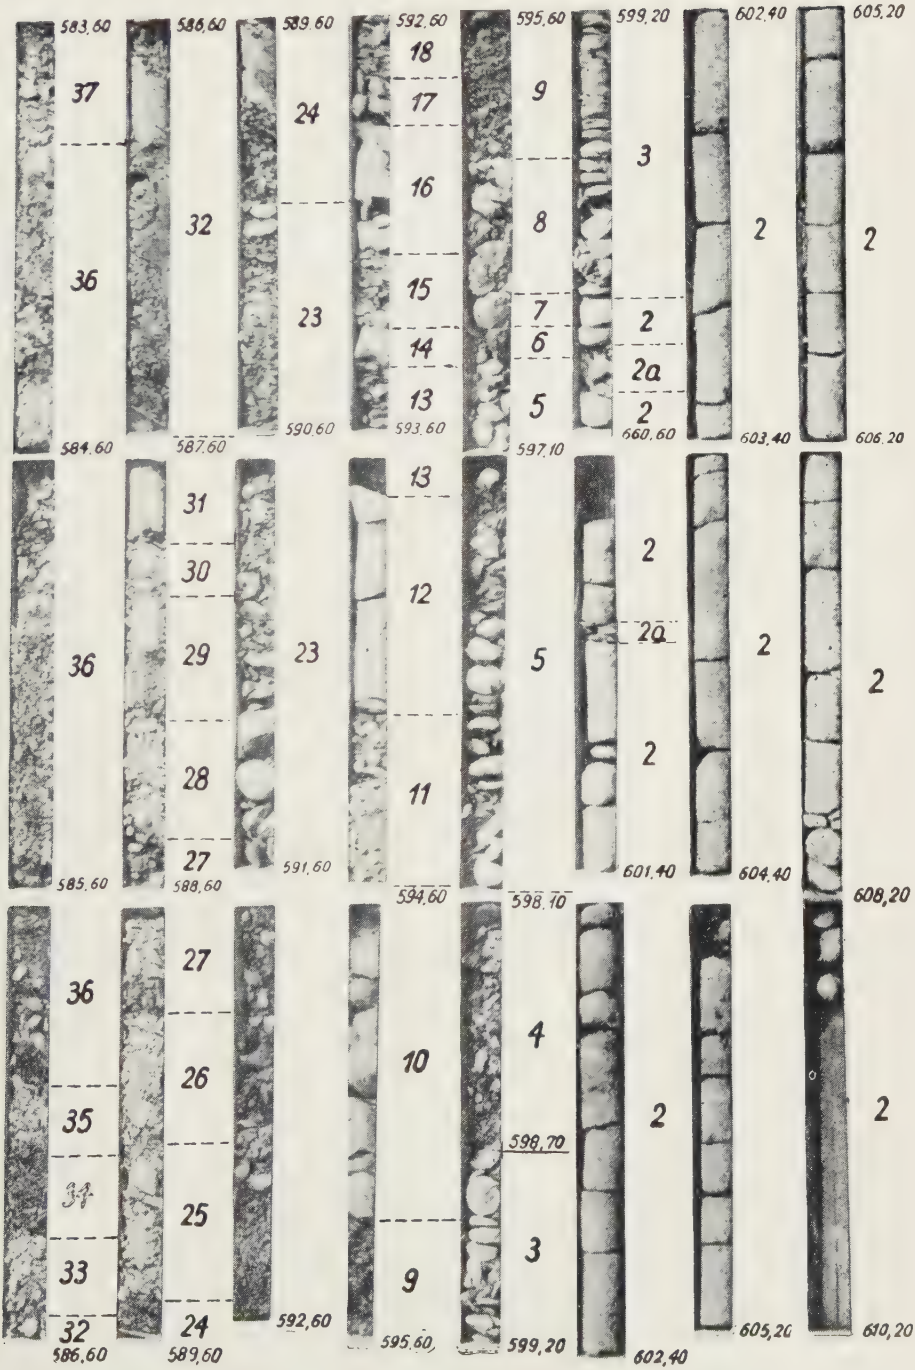 583,60
37
36
584,60
36
585,60
36
35
34
33
32
586,60
586,60
32
587,60
31
30
29
28
27
588,60
27
26
25
24
589,60
589,60
24
23
590,60
23
591,60
592,60
592,60
18
17
16
15
14
13
593,60
13
12
11
594,60
10
9
595,60
595,60
9
8
7
6
5
597,10
5
598,10
4
598,70
3
599,20
599,20
3
2
2a
2
660,60
2
2a
2
601,40
2
602,40
602,40
2
603,40
2
604,40
605,20
605,20
2
606,20
2
608,20
2
610,20